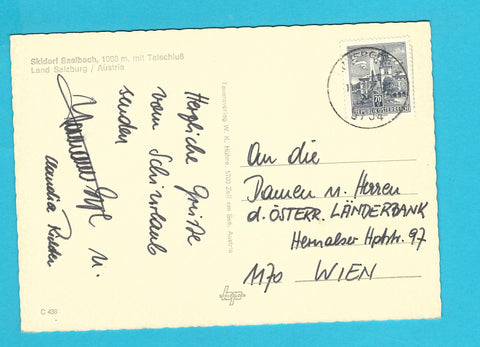 Skidorf Saalbach, 1003 m, mit Talschluß
Land Salzburg / Austria
Herzliche Grüße
vom Schiurlaub
senden
u.
Claudia
Tauernverlag W. K. Hühne, 5700 Zell am See, Austria
REPUBLIK ÖSTERREICH
An die
Damen u. Herren
d. ÖSTERR. LÄNDERBANK
Hernalser Hptstr. 97
1170 WIEN
C 436